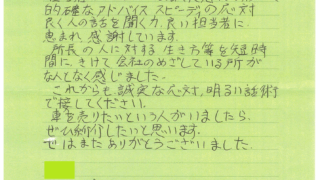 的確なアドバイス スピーディの応対
良く人の話を聞く力、良い担当者に
恵まれ感謝しています。
所長の人に対する生き方等を短時
間に、きけて会社のめざしている所が
なんとなく感じました。
これからも誠実な応対、明るい話術
で接してください。
車を売りたいという人がいましたら
ぜひ紹介したいと思います。
ではまたありがとうございました。